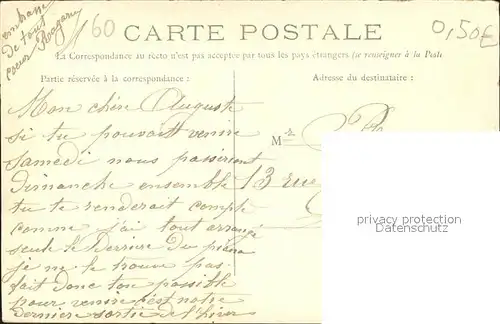 160
0,50€
CARTE POSTALE
La Correspondance au recto n'est pas acceptée par tous les pays étrangers (se renseigner à la Poste
Partie réservée à la correspondance :
Adresse du destinataire :
embrasse
De tout
coeur
Mon cher Auguste
si tu pouvait venire
samedi nous passerient
Dimanche ensemble
tu te renderait compte
comme j'ai tout arrangé
seule le Derrière Du piano
je ne le trouve pas
fait donc ton possible
pour venire c'est notre
dernière sortie de l'hiver
M
13 rue
privacy protection
Datenschutz